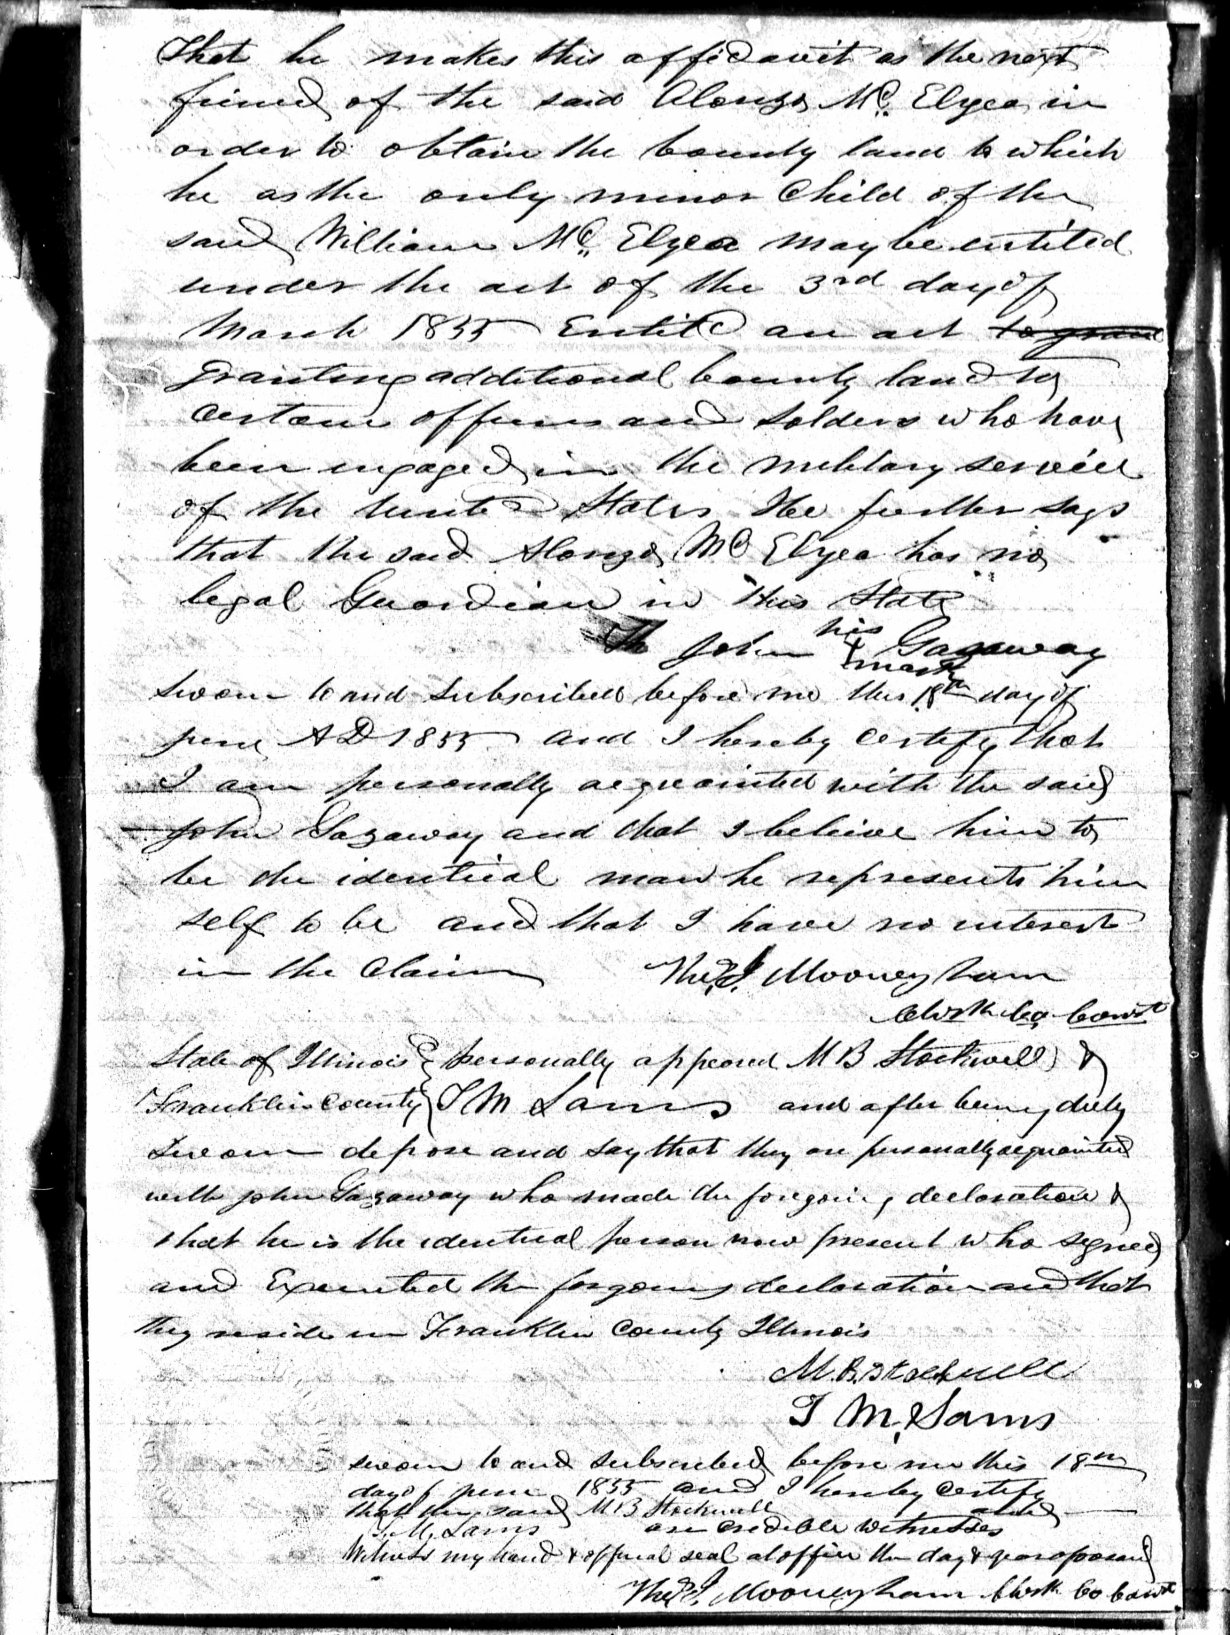 That he makes this affidavit as the next
friend of the said Alonzo Mc Elyea in
order to obtain the bounty land to which
he as the only minor Child of the
said William Mc Elyea may be entitled
under the act of the 3rd day of
March 1855 Entitd an act to grant
granting additional bounty land to
certain officers and solders who have
been engaged in the military service
of the United States He further says
that the said Alonzo Mc Elyea has no
legal Guardian in this State
John his Gazaway
mark
Sworn to and subscribed before me this 18th day of
june AD 1855 and I hereby certify that
I am personally acquainted with the said
John Gazaway and that I believe him to
be the identical man he represents him
self to be and that I have no interest
in the claim Tho. J. Mooneyham
Clerk Co Court
State of Illinois personally appeared M B Stockwell &
Franklin County J M Sams and after being duly
Sworn depose and say that they are personally acquainted
with John Gazaway who made the foregoing declaration &
that he is the identical person now present who signed
and Executed the forgoing declaration and that
they reside in Franklin County Illinois
M. B. Stockwell
J M. Sams
sworn to and subscribed before me this 18th
day of june 1855 and I hereby certify
that they said M B Stockwell and
J. M. Sams are credible witnesses
Witness my hand & official seal at office the day & year aforesaid
Tho. J. Mooneyham Clerk Co Court